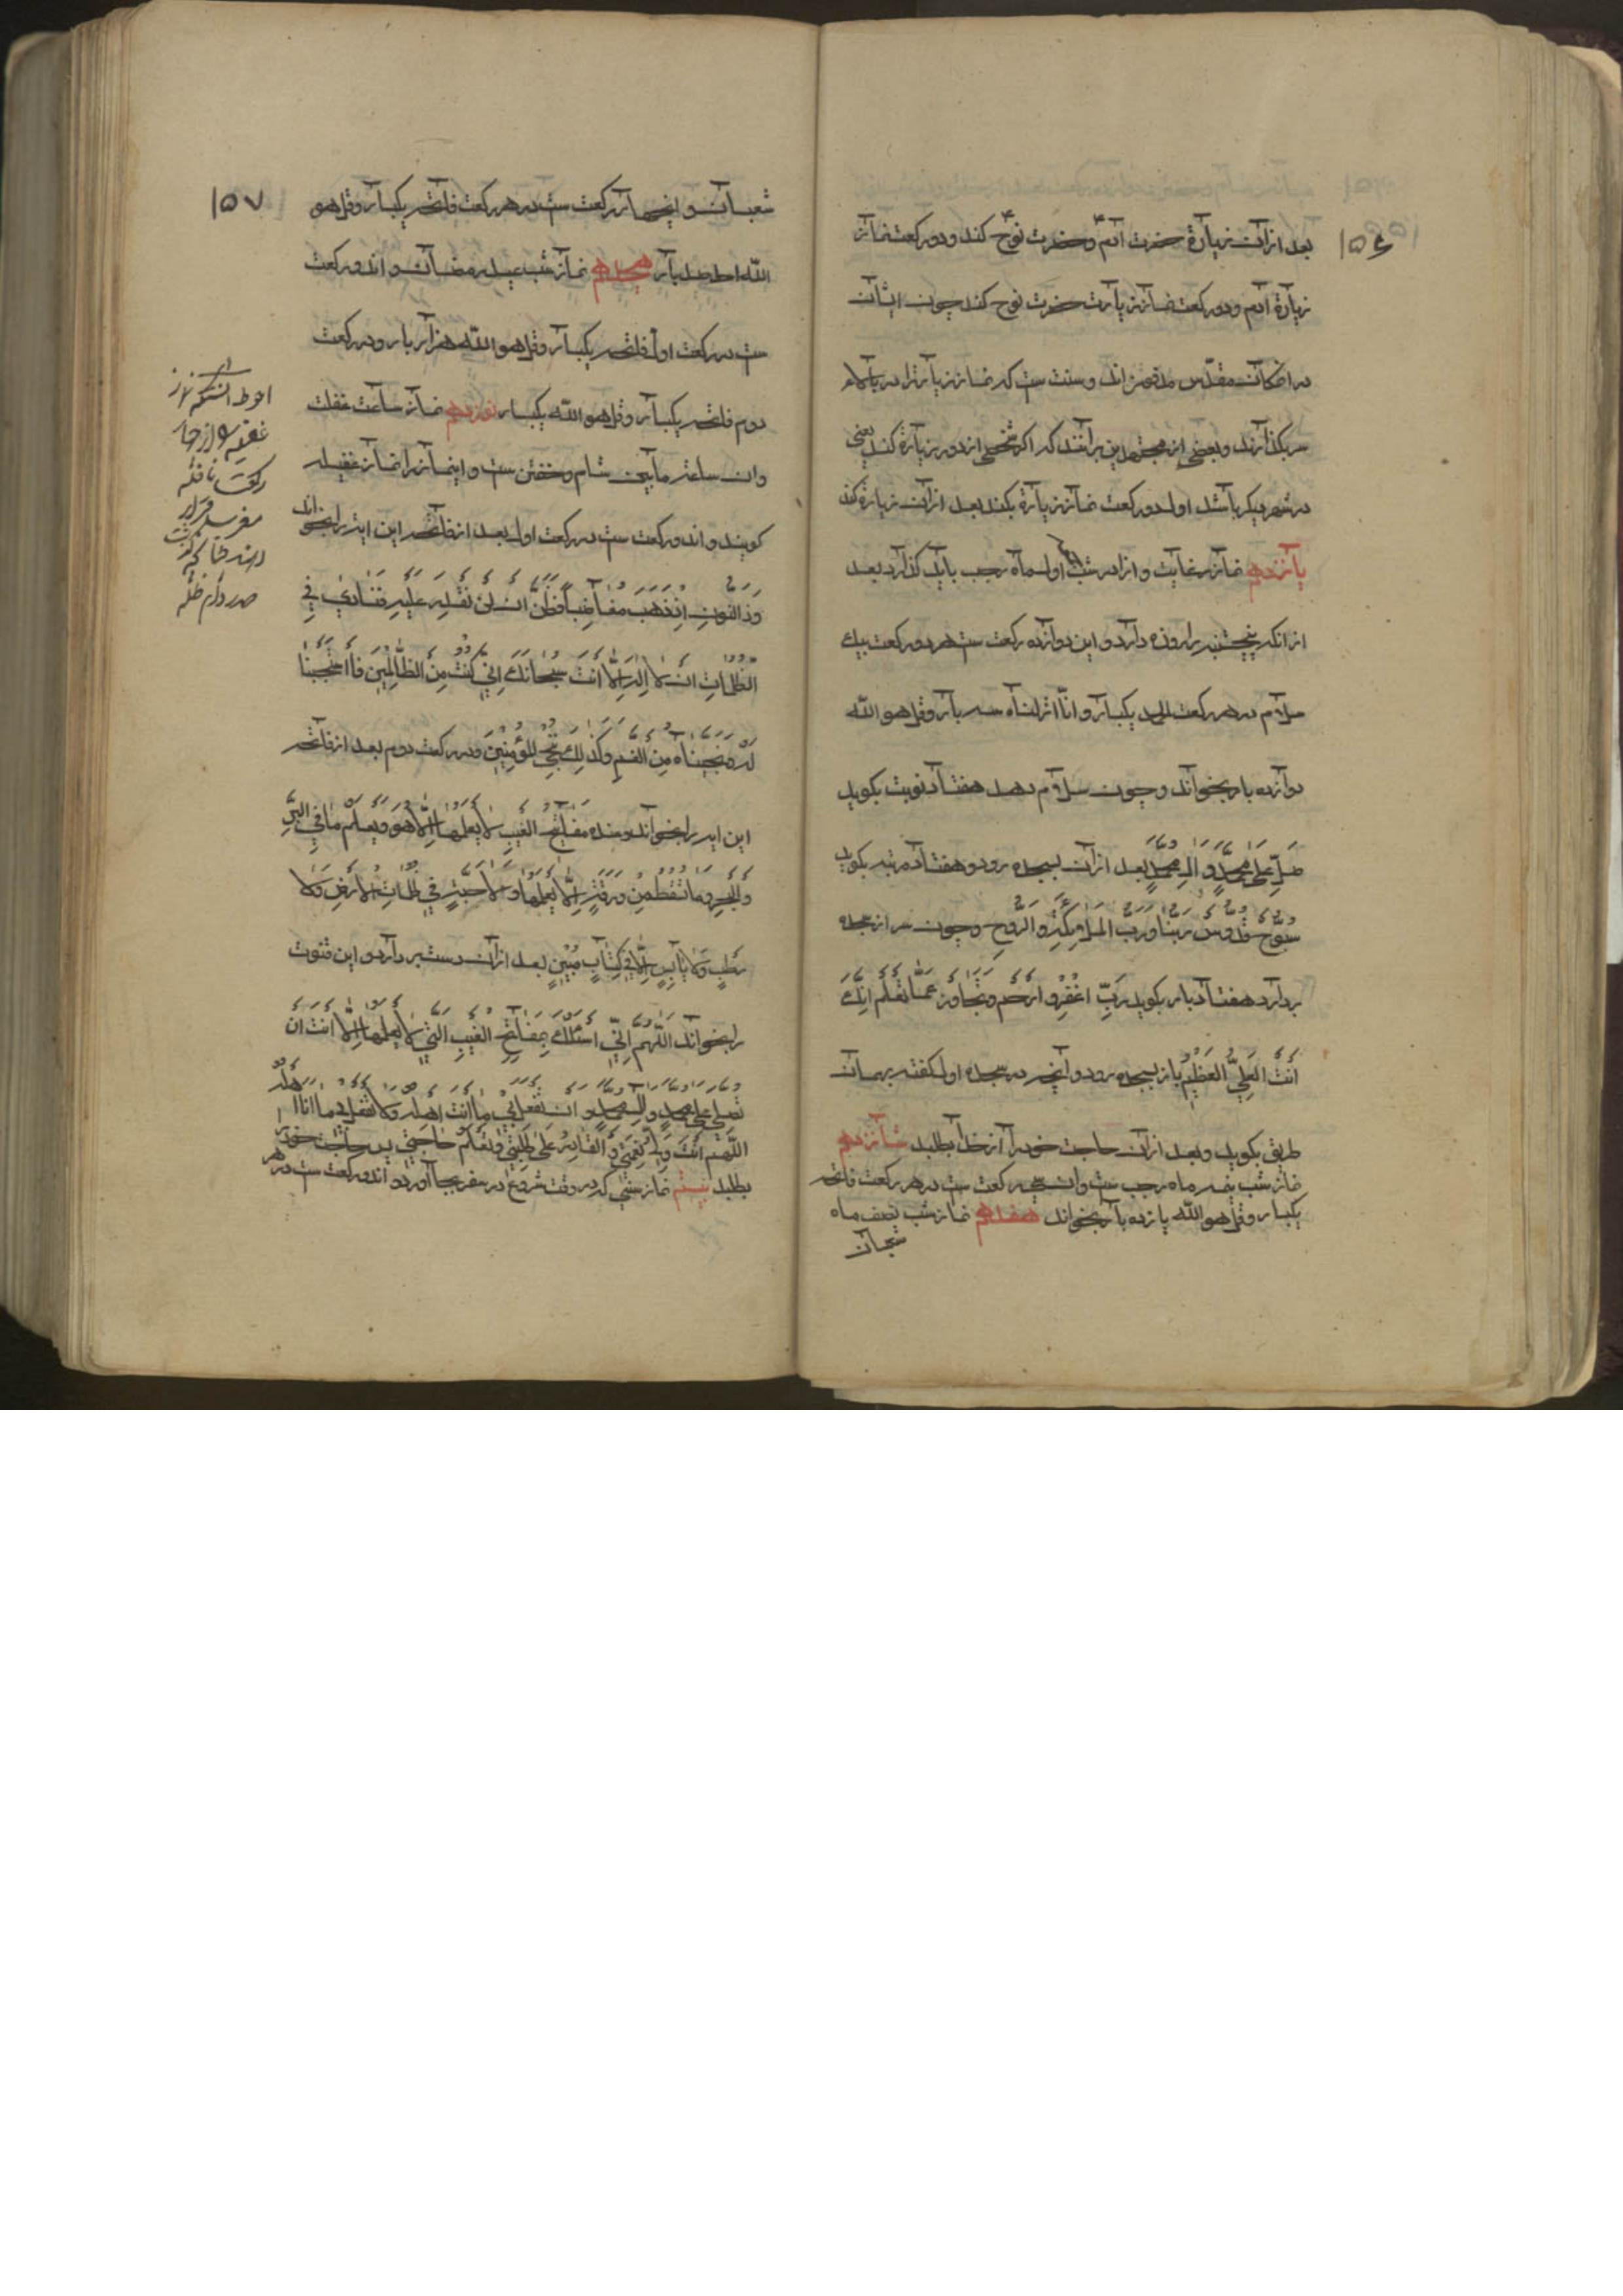 ۱۵۶
بعد ازان زیارة حضرت ادم ع و حضرت نوح ع کند و دو رکعت نماز
زیارة ادم و دو رکعت نماز زیارت حضرت نوح کند چون ایشان
در انمکان مقدّس مدفون اند و سنت ست که نماز زیارترا در بالاء
سر بکذارند و بعضی از مجتهدین برانند که اکر شخصی از دور زیارة کند یعنی
در شهر دیکر باشد اول دو رکعت نماز زیارة بکند بعد ازان زیارة کند
پانزدهم نماز رغایب و انرا در شب اول ماه رجب باید کذارد بعد
از انکه پنجشنبه را روزه دارد و این دوازده رکعت ست هر دو رکعت بیک
سلام در هر رکعت الحمد یکبار و انّا انزلناه سه بار و قل هو اللّه
دوازده بار بخواند و چون سلام دهد هفتاد نوبت بکوید
صَلِّ عَلی مُحَمَّدٍ وَ الِ مُحَمَّدٍ بعد ازان بسجده رود و هفتاد مرتبه بکوید
سُبُّوحٌ قُدُّوسٌ رَبُّنا وَ رَبُّ المَلائِکَةِ وَ الرُّوحِ و چون سر از سجده
بردارد هفتاد بار بکوید رَبِّ اغْفِرْ وَ ارْحَمْ وَ تَجاوَزْ عَمّا تَعْلَمُ اِنَّکَ
اَنْتَ العَلِیُّ العَظِیْمُ باز بسجده رود و آنچه در سجده اول کفته بهمان
طریق بکوید و بعد ازان حاجت خود را از خدا بطلبد شانزدهم
نماز شب نیمه ماه رجب ست و ان سی رکعت ست در هر رکعت فاتحه
یکبار و قل هو اللّه یازده بار بخواند هفدهم نماز شب نصف ماه
شعبان
۱۵۷
شعبان و این چهار رکعت ست در هر رکعت فاتحه یکبار و قل هو
اللّه احد صد بار هجدهم نماز شب عید رمضان و ان دو رکعت
ست در رکعت اول فاتحه یکبار و قل هو اللّه هزار بار و در رکعت
دوم فاتحه یکبار و قل هو اللّه یکبار نوزدهم نماز ساعت غفلت
و ان ساعت مابین شام و خفتن ست و اینماز را نماز غفیله
کویند و ان دو رکعت ست در رکعت اول بعد از فاتحه این ایه را بخواند
وَ ذَا النُّونِ اِذْ ذَهَبَ مُغاضِباً فَظَنَّ اَنْ لَنْ نَقْدِرَ عَلَیْهِ فَنادی فِی
الظُّلُماتِ اَنْ لا اِلهَ اِلّا اَنْتَ سُبْحانَکَ اِنّی کُنْتُ مِنَ الظّالِمینَ فَاسْتَجَبْنا
لَهُ وَ نَجَّیْناهُ مِنَ الغَمِّ وَ کَذلِکَ نُنْجِی المُؤْمِنِینَ و در رکعت دوم بعد از فاتحه
این ایه را بخواند وَ عِنْدَهُ مَفاتِحُ الغَیْبِ لا یَعْلَمُها اِلّا هُوَ وَ یَعْلَمُ ما فِی البَرِّ
وَ البَحْرِ وَ ما تَسْقُطُ مِنْ وَرَقَةٍ اِلّا یَعْلَمُها وَ لا حَبَّةٍ فِی ظُلُماتِ الاَرْضِ وَ لا
رَطْبٍ وَ لا یابِسٍ اِلّا فِی کِتابٍ مُبِیْنٍ بعد ازان دست بردارد و این قنوت
را بخواند اَللّهُمَّ اِنّی اَسْئَلُکَ بِمَفاتِحِ الغَیْبِ الَّتِی لا یَعْلَمُها اِلّا اَنْتَ اَنْ
تُصَلِّیَ عَلی مُحَمَّدٍ وَ الِ مُحَمَّدٍ وَ اَنْ تَفْعَلَ بِی ما اَنْتَ اَهْلُهُ وَ لا تَفْعَلْ بِی ما اَنَا اَهْلُهُ
اَللّهُمَّ اَنْتَ وَلِیُّ نِعْمَتِی وَ القادِرُ عَلی طَلِبَتِی وَ تَعْلَمُ حاجَتِی پس حاجت خود را
بطلبد بیستم نماز سنتی که در وقت شروع در سفر بجا آورد و ان دو رکعت ست در هر
احوط انستکه نماز
غفیله را از چهار
رکعت نافله
مغرب قرار
دهند
صدر دام ظله